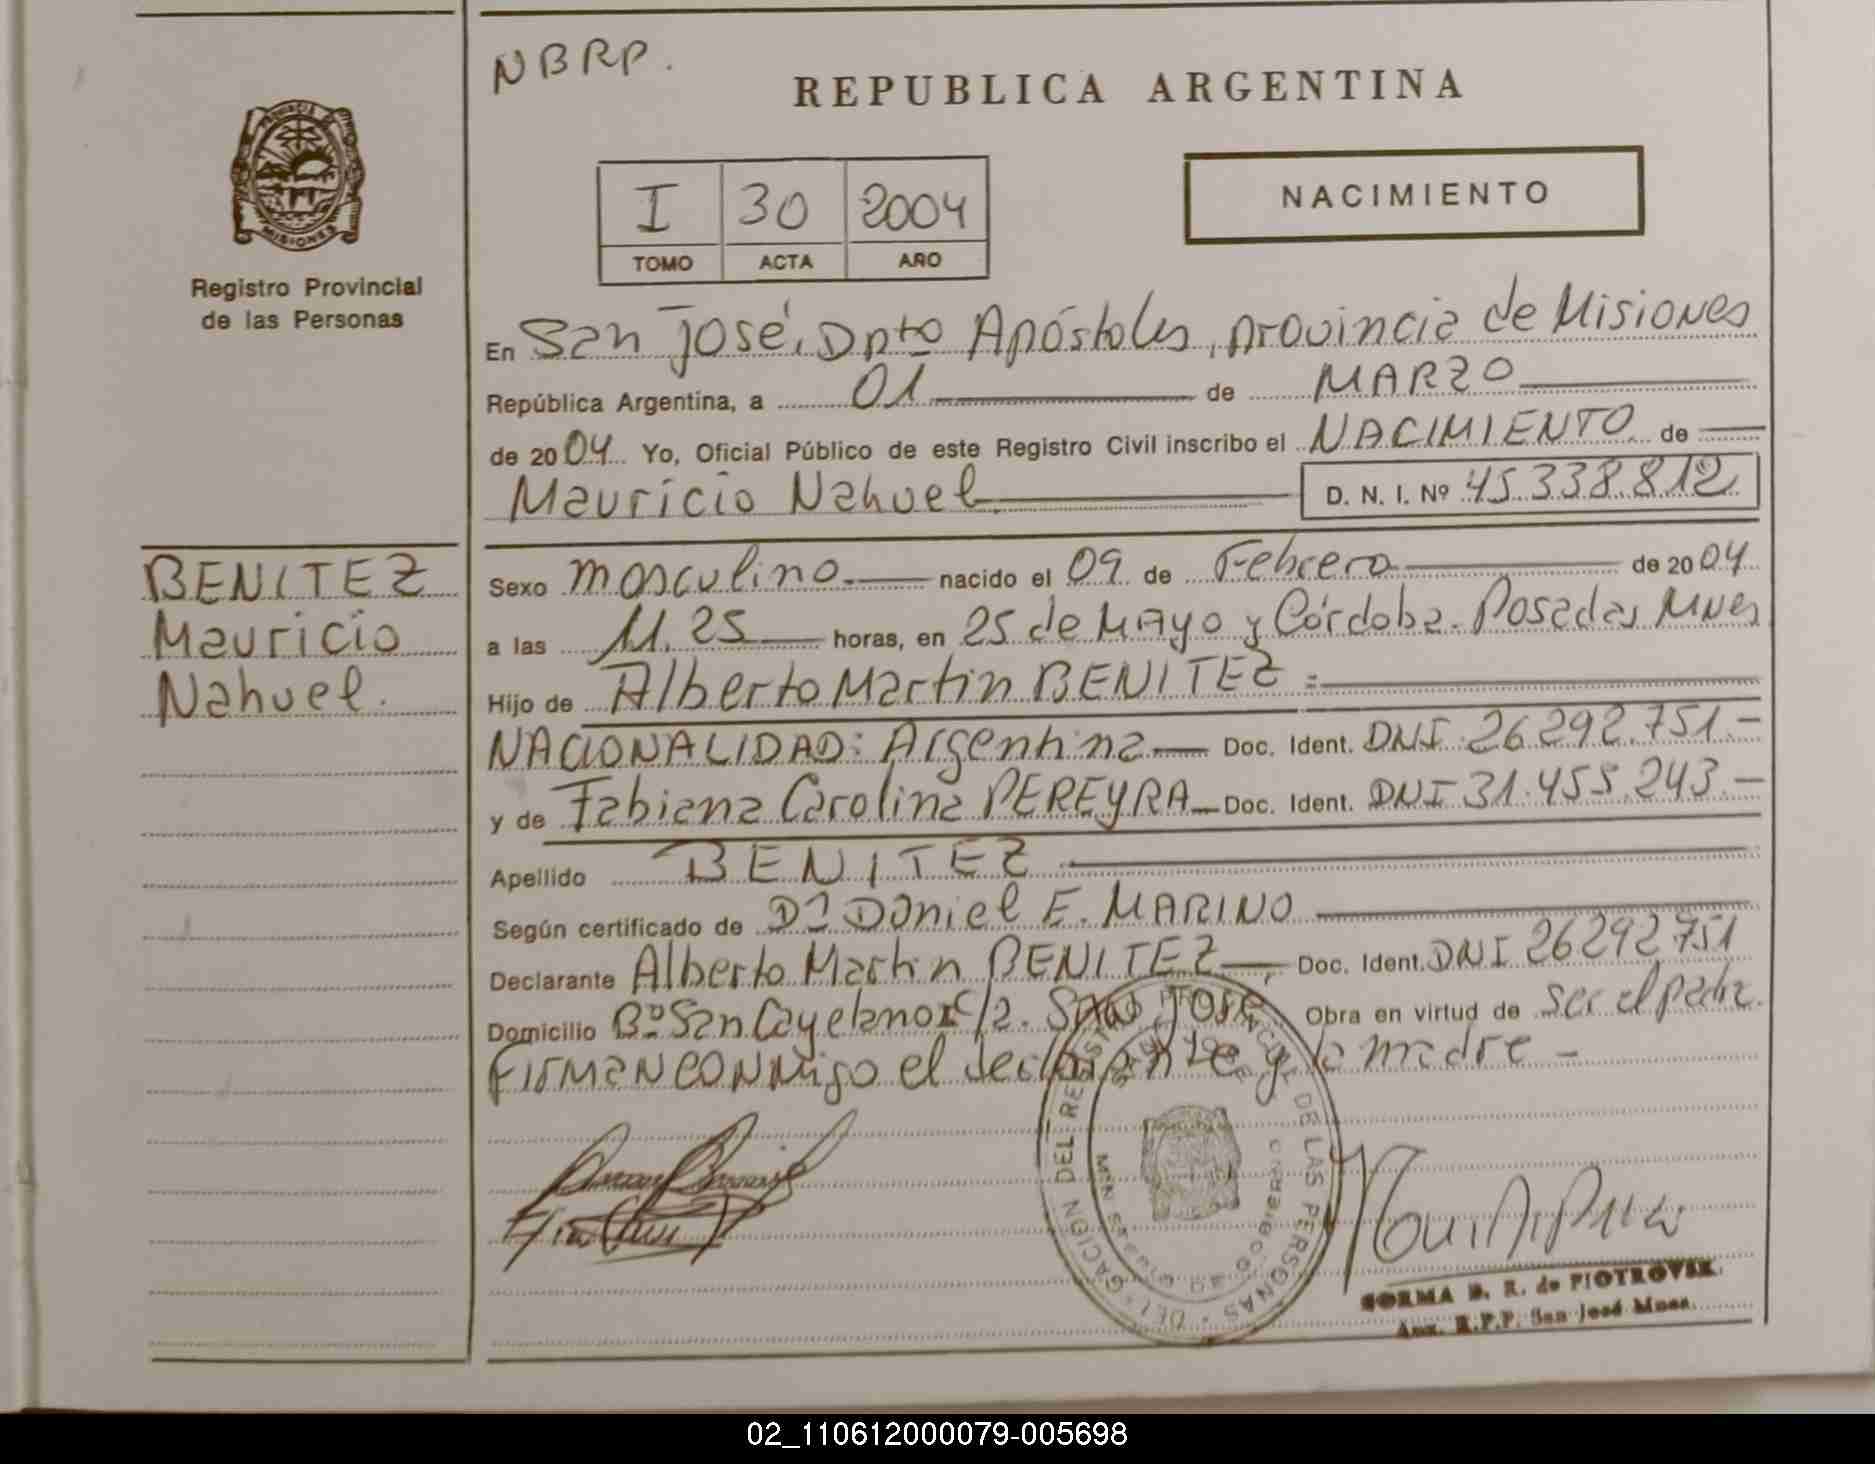 NBRP.
REPUBLICA ARGENTINA
PROVINCIA DE
MISIONES
Registro Provincial
de las Personas
I 30 2004
TOMO ACTA AÑO
NACIMIENTO
En San José, Dpto Apóstoles, provincia de Misiones
República Argentina, a 01 de MARZO
de 2004 Yo, Oficial Público de este Registro Civil inscribo el NACIMIENTO de
Mauricio Nahuel D. N. I. Nº 45.338.812
BENITEZ
Mauricio
Nahuel.
Sexo masculino nacido el 09 de Febrero de 2004
a las 11.25 horas, en 25 de Mayo y Córdoba. Posadas Mnes
Hijo de Alberto Martin BENITEZ =
NACIONALIDAD: Argentina Doc. Ident. DNI 26.292.751.-
y de Fabiana Carolina PEREYRA Doc. Ident. DNI 31.455.243.-
Apellido BENITEZ
Según certificado de Dr Daniel E. MARINO
Declarante Alberto Martin BENITEZ, Doc. Ident. DNI 26292751
Domicilio Bº San Cayetano c/a. San José Obra en virtud de ser el padre.
Firman conmigo el declarante y la madre -
DELEGACION DEL REGISTRO PROVINCIAL DE LAS PERSONAS
SAN JOSE
GOBIERNO
NORMA B. R. de PIOTROVSK
Aux. R.P.P. San José Mnes.
02_110612000079-005698